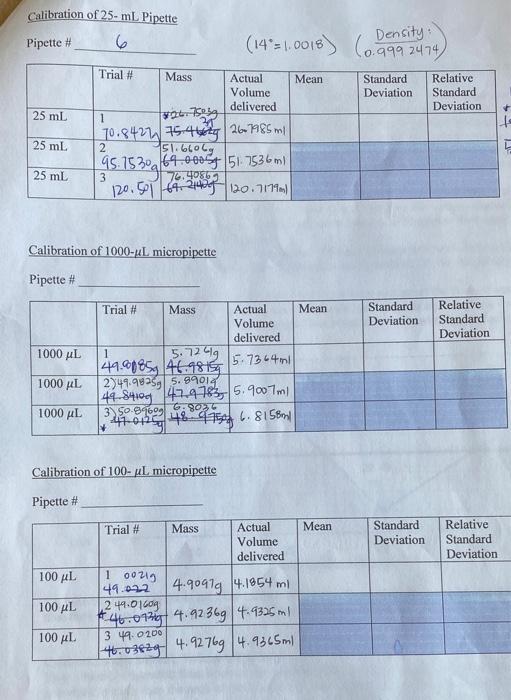 Calibration of 25- mL Pipette
Pipette # 6 (14°=1.0018) (Density: 0.9992474)
Trial # Mass Actual Volume delivered Mean Standard Deviation Relative Standard Deviation
25 mL 1 26.7503g
70.8427 26.7985ml
25 mL 2 51.6606g
95.7530g 69.0005g 51.7536ml
25 mL 3 76.4086g
120.501 69.2140g 120.7179ml
Calibration of 1000-µL micropipette
Pipette #
Trial # Mass Actual Volume delivered Mean Standard Deviation Relative Standard Deviation
1000 µL 1 5.7261g
49.8185g 46.9815g 5.7364ml
1000 µL 2) 49.9825g 5.8901g
49.8410g 47.9783g 5.9007ml
1000 µL 3) 50.8960g 6.8036
47.0125g 48.9750g 6.8158ml
Calibration of 100- µL micropipette
Pipette #
Trial # Mass Actual Volume delivered Mean Standard Deviation Relative Standard Deviation
100 µL 1 0021g
49.022 4.9097g 4.1854 ml
100 µL 2 49.0160g
46.0736g 4.9236g 4.9325ml
100 µL 3 49.0200
46.0382g 4.9276g 4.9365ml